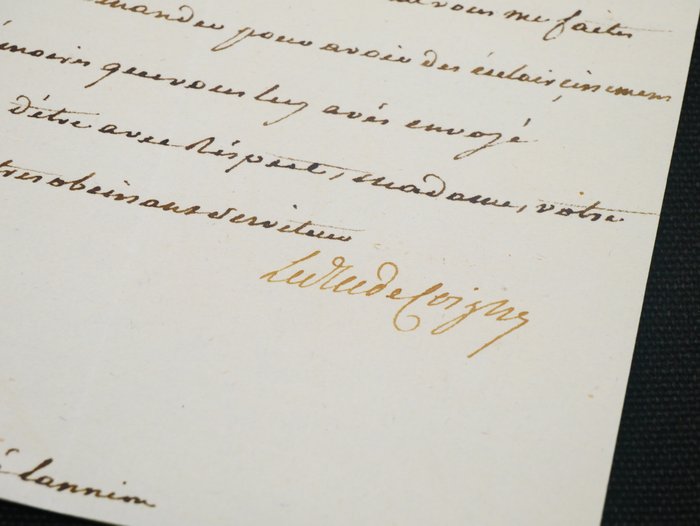 vous me faites
mander pour avoir des éclaircissemens
moires que vous luy avés envoyé
d'être avec respect, madame, votre
tres obeissant serviteur
Le Duc de Coigny
Lannion